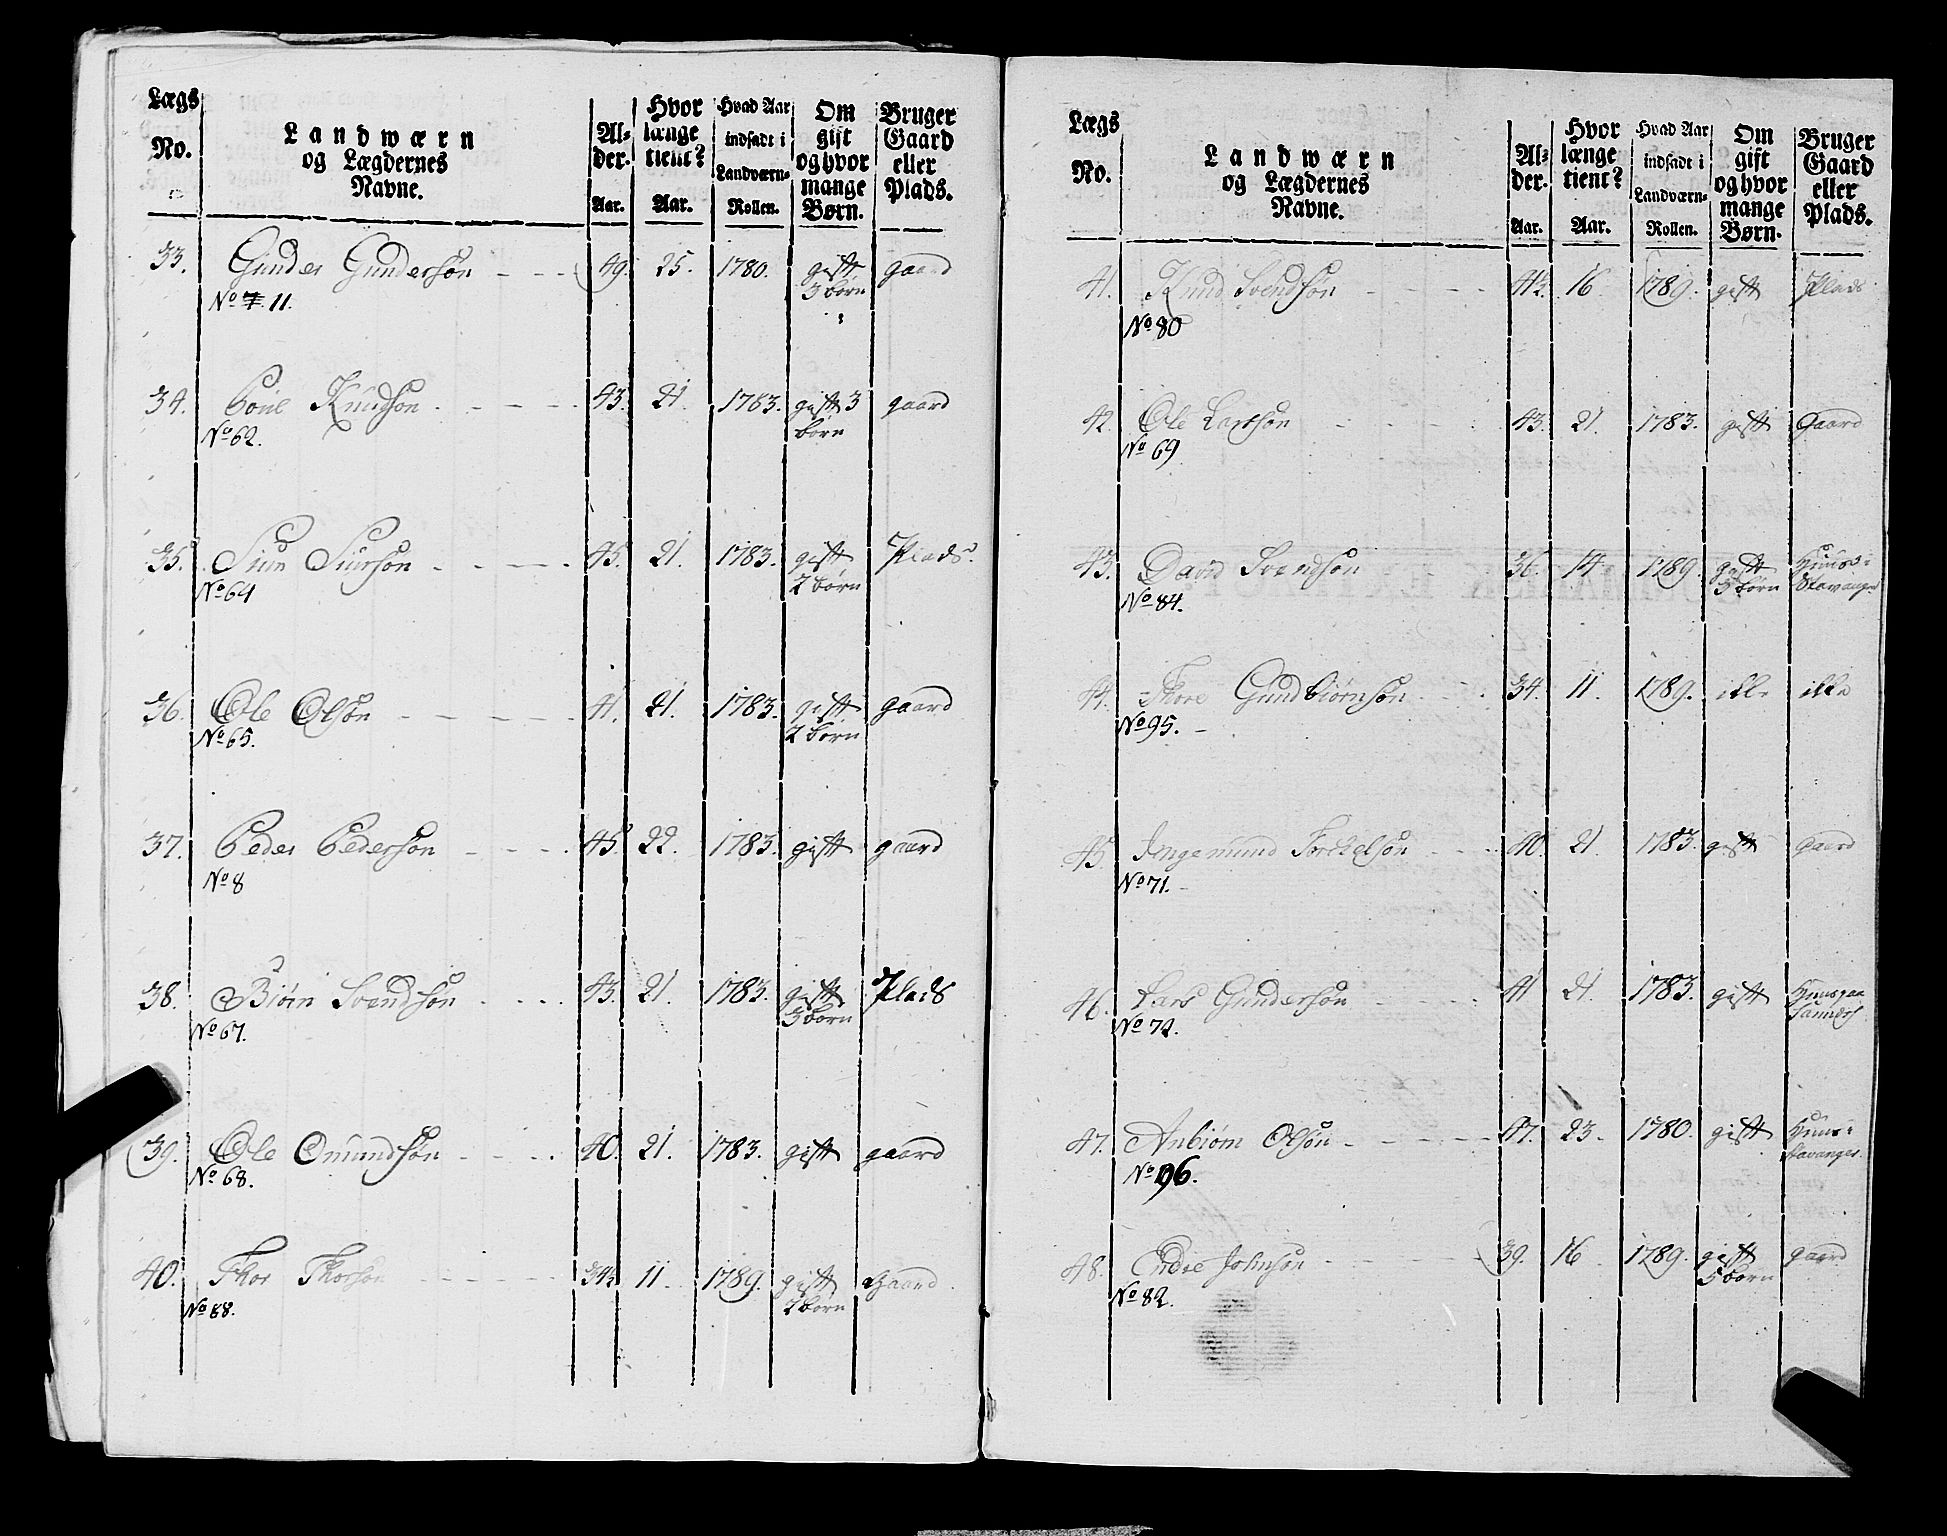 Lægs No. | Landwærn og Lægdernes Navne. | Al-der. Aar. | Hvor længe tient? Aar. | Hvad Aar indsadt i Landværn-Rollen. | Om gift og hvor mange Børn. | Bruger Gaard eller Plads.
33. Gunder Gunderson - - - 49. 25. 1780. gift gaard
No 7. 11. 3 børn
34. Poul Knudson - - - 43. 21. 1783. gift 3 gaard
No 62. børn
35. Siur Siurson - - - 45. 21. 1783. gift Plads.
No 64 2 børn
36. Ole Olson - - - 41. 21. 1783. gift gaard
No 65. 2 børn
37. Peder Pederson - - - 45. 22. 1783. gift gaard
No 8
38. Biørn Svendson - - - 43. 21. 1783. gift Plads
No 67. 3 børn
39. Ole Omundson - - - 40. 21. 1783. gift gaard
No 68.
40. Thor Thorson - - - 34½ 11. 1789. gift Gaard
No 88. 2 børn
Lægs No. | Landwærn og Lægdernes Navne. | Al-der. Aar. | Hvor længe tient? Aar. | Hvad Aar indsadt i Landværn-Rollen. | Om gift og hvor mange Børn. | Bruger Gaard eller Plads.
41. Knud Svendson - - - 16. 1789. gift Plads
No 80
42. Ole Larson - - - 43. 21. 1783. gift Gaard
No 69
43. David Svendson - 36. 14 1789. gift Huus i
No 84. 3 børn Stavanger
44. Thore Gundbiørnson - - 34. 11. 1789. ikke ikke
No 95. -
45. Ingemund Torckelson - - - 40. 21 1783. gift gaard
No 71. -
46. Lars Gunderson - - - 41 21. 1783. gift
No 72.
47. Anbiørn Olson - - - 47. 23. 1780. gift Huus i
No 96. Stavanger.
48. Endre Johnson - - - 39. 16 1789. gift gaard
No 82. 5 børn